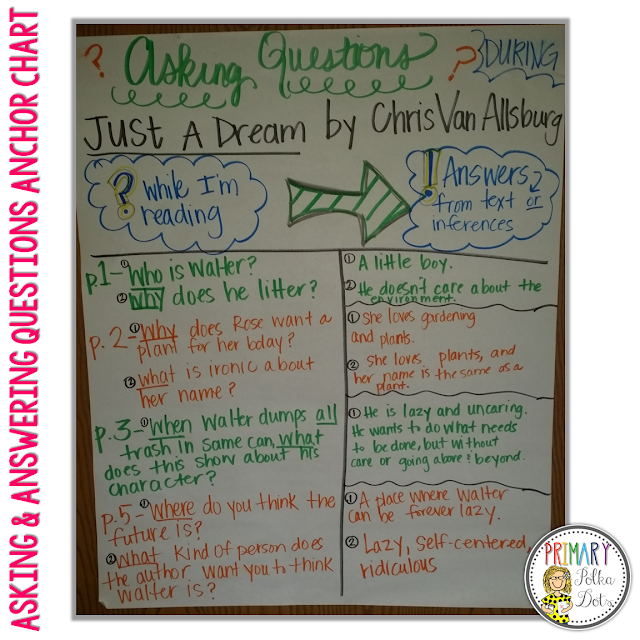 ASKING & ANSWERING QUESTIONS ANCHOR CHART
? Asking Questions ? DURING
Just A Dream by Chris Van Allsburg
? while I'm
reading
! Answers
from text or
inferences
p.1- ① Who is Walter?
② Why does he litter?
① A little boy.
② He doesn't care about the
environment.
p. 2- ① Why does Rose want a
plant for her bday?
② what is ironic about
her name?
① She loves gardening
and plants.
② she loves plants, and
her name is the same as a
plant.
p.3- ① When Walter dumps all
trash in same can, what
does this show about his
character?
① He is lazy and uncaring.
He wants to do what needs
to be done, but without
care or going above & beyond.
p.5- ① Where do you think the
future is?
② What kind of person does
the author want you to think
Walter is?
① A place where Walter
can be forever lazy.
② Lazy, self-centered,
ridiculous
PRIMARY
Polka
Dots